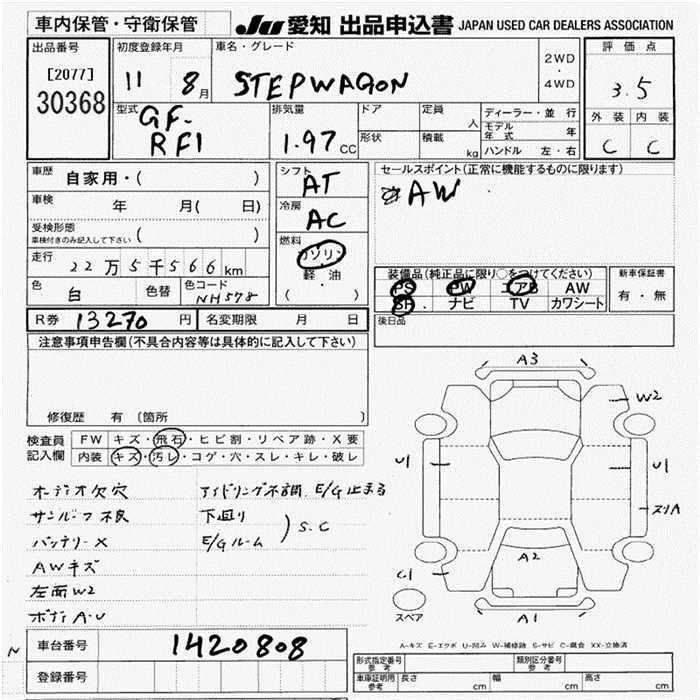 車内保管・守衛保管
JU 愛知 出品申込書 JAPAN USED CAR DEALERS ASSOCIATION
出品番号
[2077]
30368
初度登録年月
11 8月
車名・グレード
STEPWAGON
2WD
・
4WD
評価点
3.5
外装 内装
C C
型式
GF-
RF1
排気量
1.97 CC
ドア
形状
定員
人
積載
kg
ディーラー・並行
モデル年式 年
ハンドル 左・右
車歴 自家用・( )
車検 年 月( 日)
受検形態
車検付きのみ記入して下さい ( )
走行 22万5千566km
色 白 色替 色コード NH578
シフト
AT
冷房
AC
燃料
ガソリン
軽・油
( )
セールスポイント(正常に機能するものに限ります)
AW
装備品(純正品に限り○をつけてください)
PS PW エアB AW
SR ナビ TV カワシート
新車保証書
有・無
後日品
R券 13270 円 名変期限 月 日
注意事項申告欄(不具合内容等は具体的に記入して下さい)
修復歴 有 〔箇所 〕
検査員
記入欄
FW キズ・飛石・ヒビ割・リペア跡・X要
内装 キズ・汚レ・コゲ・穴・スレ・キレ・破レ
オーデオ欠穴
サンルーフ不良
バッテリーX
AWキズ
左面W2
ボディA-U
アイドリング不調.E/G止まる
下回り
E/Gルーム
S.C
A3
W2
U1
U1
スリA
A2
C1
A1
スペア
A-キズ E-エクボ U-凹み W-補修跡 S-サビ C-腐食 XX-交換済
N
車台番号 1420808
登録番号
形式指定番号
参考
類別区分番号
参考
車庫証明用
参考
長さ cm 幅 cm 高さ cm